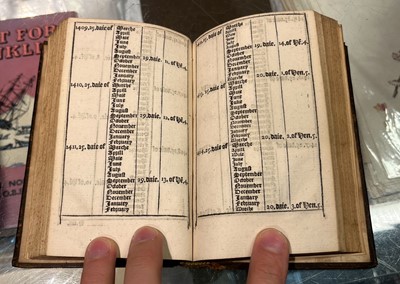 T FOR
1409.25.daie of Marche
Aprill
Maie
June
July
August
September
October
November
December
January
February
1410.25.daie of Marche
Aprill
Maie
June
July
August
September
October
November
December
January
February
1411.25.daie of Marche
Aprill
Maie
June
July
August
September 29.daie. 13.of H.4.
October
November
December
January
February
daie of Marche
Aprill
Maie
June
July
August
September 14.of H.4.
October
November
December
January
February
20.daie. 1.of Hen.5.
daie of Marche
Aprill
Maie
June
July
August
September
October
November
December
January
February
20.daie. 2.of Hen.5.
daie of Marche
Aprill
Maie
June
July
August
September
October
November
December
January
February
Marche 20.daie. 3.of Hen.5.